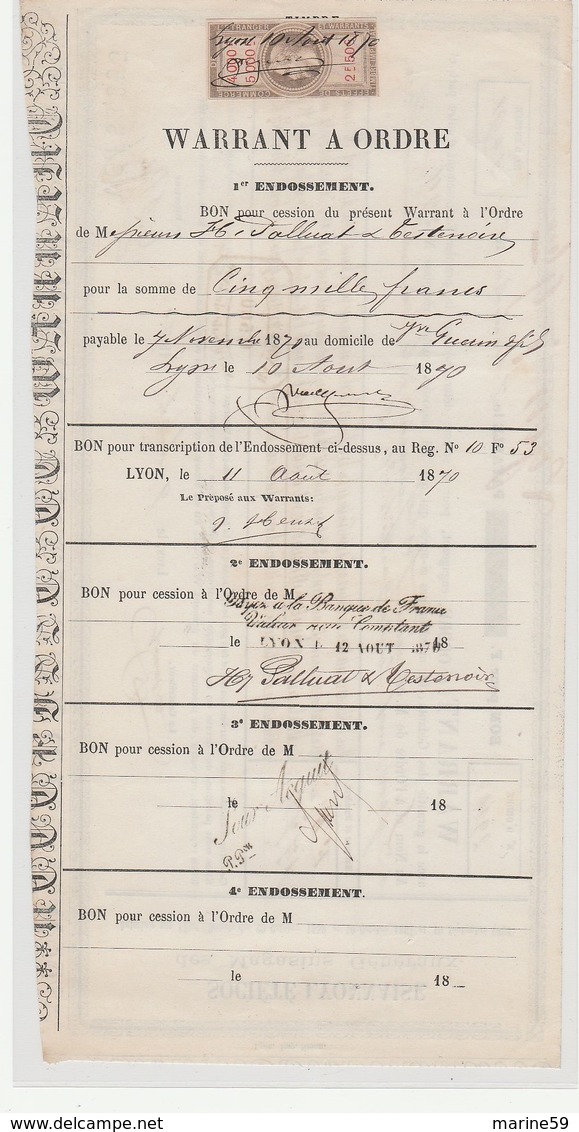 TIMBRE
L'ETRANGER ET WARRANTS
Lyon 10 Aout 1870
4.000
5.000
2F.50C
COMMERCE EFFETS DE
WARRANT A ORDRE
1er ENDOSSEMENT.
BON pour cession du présent Warrant à l'Ordre
de Messieurs Hy Palluat & Testenoire
pour la somme de Cinq mille francs
payable le 7 Novembre 1870 au domicile de Vve Guerin & fils
Lyon le 10 Aout 1870
BON pour transcription de l'Endossement ci-dessus, au Reg. No 10 Fo 53
LYON, le 11 Août 1870
Le Préposé aux Warrants:
2e ENDOSSEMENT.
BON pour cession à l'Ordre de M
Payez à la Banque de France
Valeur reçue Comptant
le LYON L 12 AOUT 1870 18
Hy Palluat & Testenoire
3e ENDOSSEMENT.
BON pour cession à l'Ordre de M
le 18
Pour Acquit
P. Pon
4e ENDOSSEMENT.
BON pour cession à l'Ordre de M
le 18
SOCIÉTÉ LYONNAISE
des Magasins Généraux
marine59